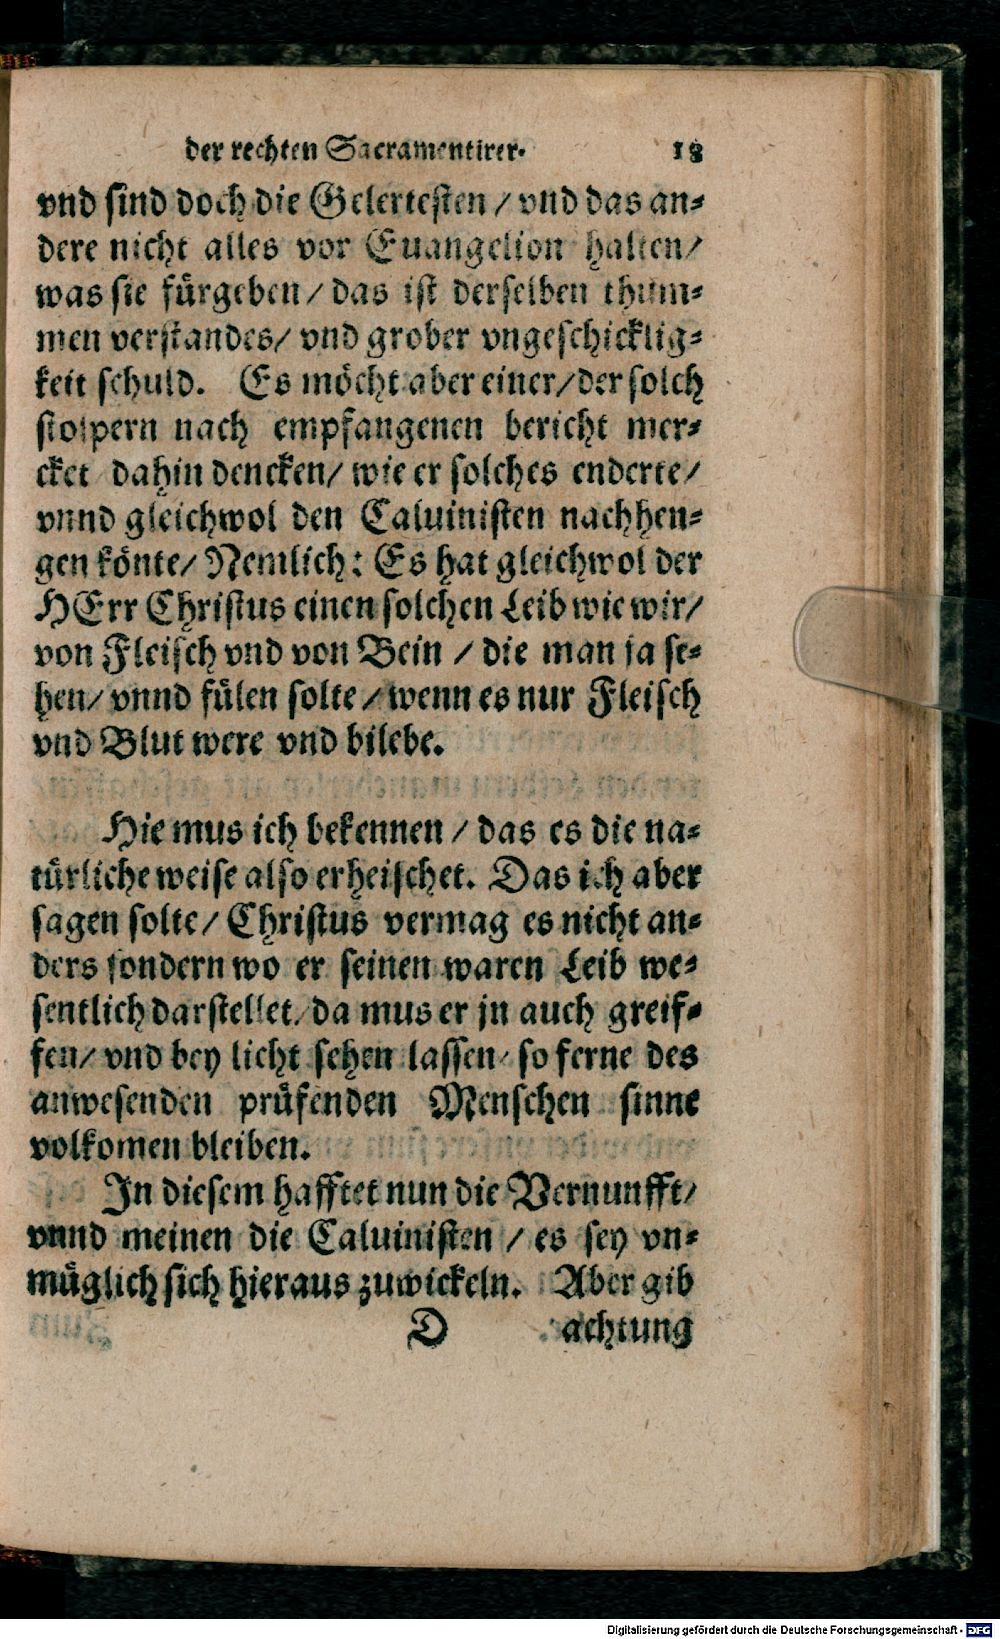 der rechten Sacramentirer. 18
vnd sind doch die Gelertesten / vnd das an-
dere nicht alles vor Euangelion halten/
was sie fürgeben / das ist derselben thum-
men verstandes/ vnd grober vngeschicklig-
keit schuld. Es möcht aber einer/ der solch
stolpern nach empfangenen bericht mer-
cket dahin dencken/ wie er solches enderte/
vnnd gleichwol den Caluinisten nachhen-
gen könte/ Nemlich: Es hat gleichwol der
HErr Christus einen solchen Leib wie wir/
von Fleisch vnd von Bein / die man ja se-
hen/ vnnd fülen solte / wenn es nur Fleisch
vnd Blut were vnd bliebe.
Hie mus ich bekennen / das es die na-
türliche weise also erheischet. Das ich aber
sagen solte/ Christus vermag es nicht an-
ders sondern wo er seinen waren Leib we-
sentlich darstellet/ da mus er jn auch greif-
fen/ vnd bey licht sehen lassen/ so ferne des
anwesenden prüfenden Menschen sinne
volkomen bleiben.
In diesem hafftet nun die Vernunfft/
vnnd meinen die Caluinisten / es sey vn-
müglich sich hieraus zuwickeln. Aber gib
D achtung
Digitalisierung gefördert durch die Deutsche Forschungsgemeinschaft - DFG